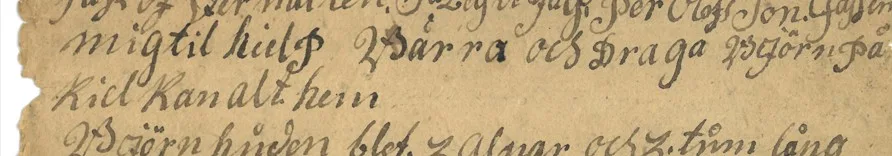 Per Olofs Son.
mig til hielp Wärra och Draga Biörn på
kiel kan alt hem
Biörn huden blef 2 alnar och 2. tum lång